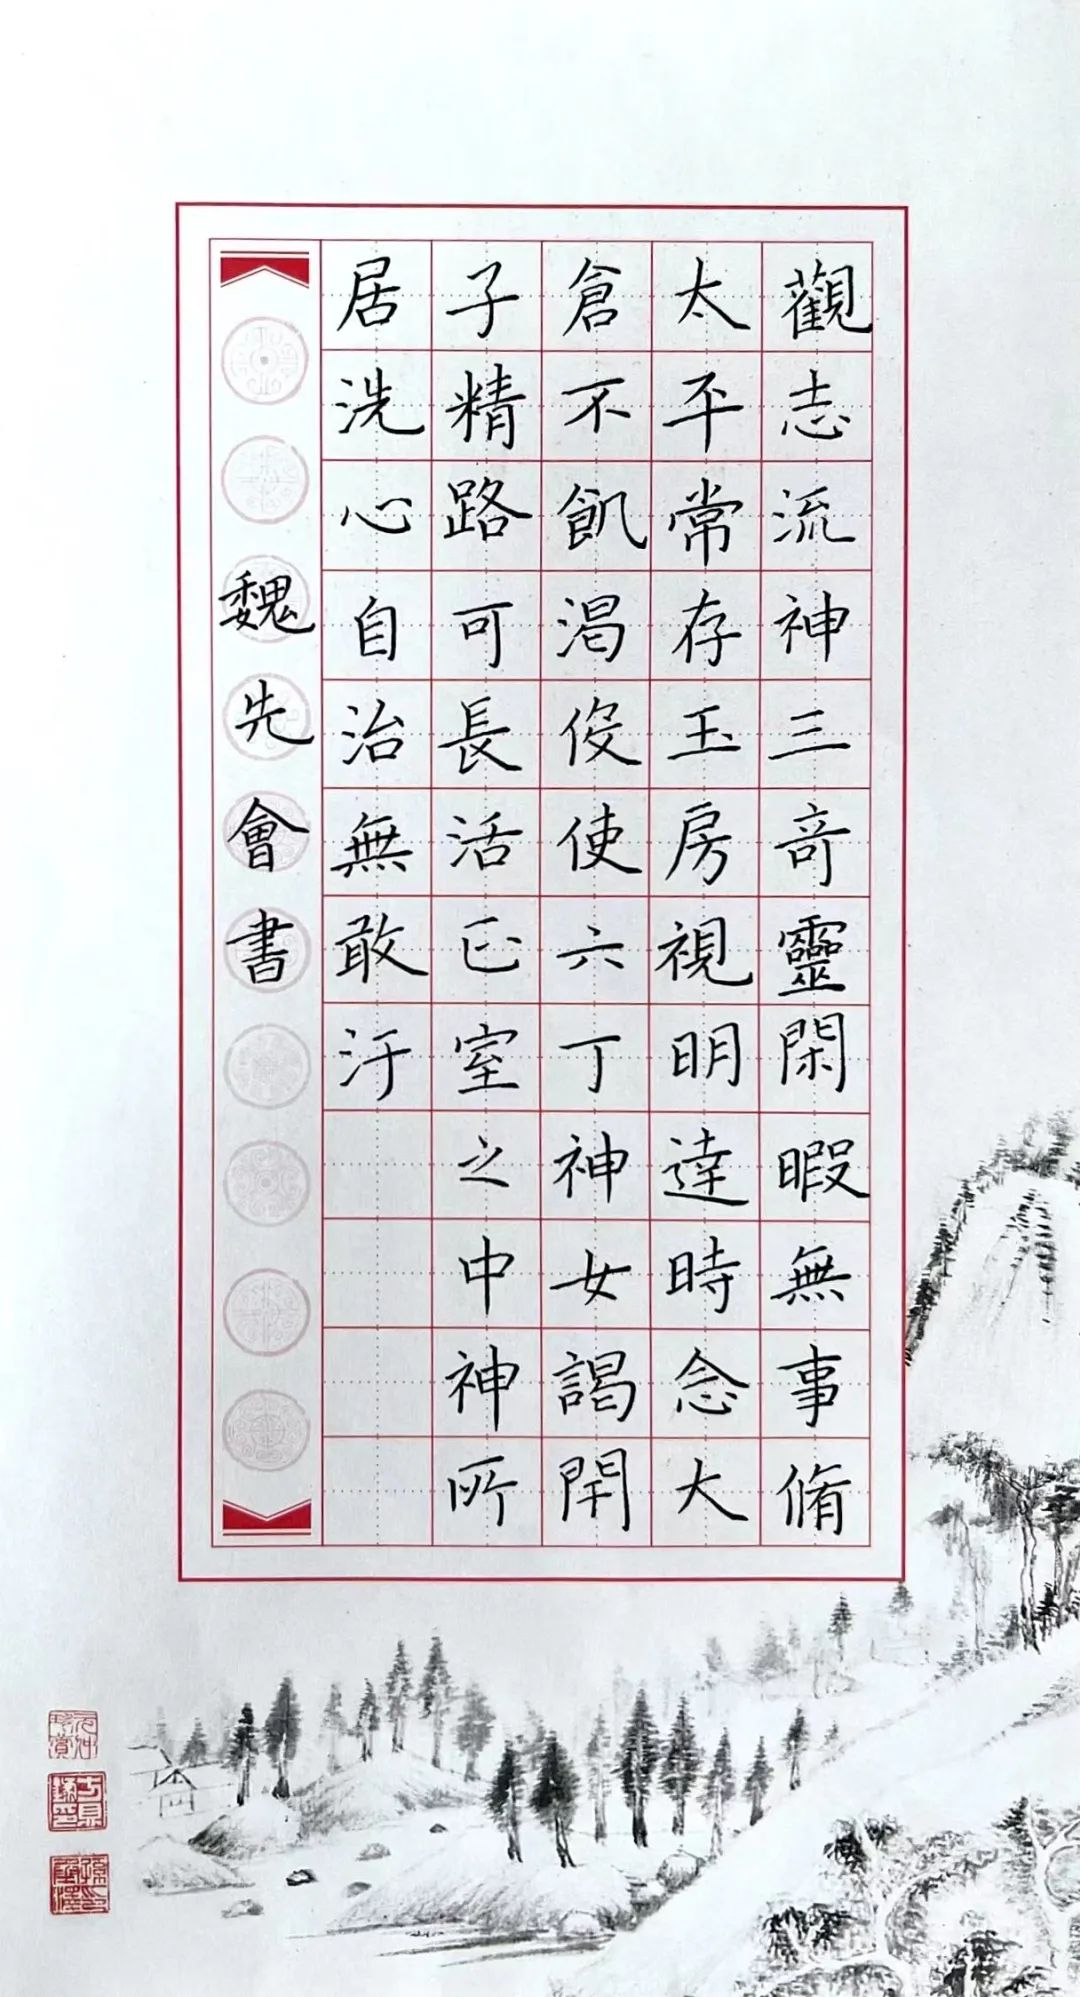 觀志流神三竒靈閑暇無事脩
太平常存玉房視明達時念大
倉不飢渴伇使六丁神女謁閇
子精路可長活正室之中神所
居洗心自治無敢汙
魏先會書